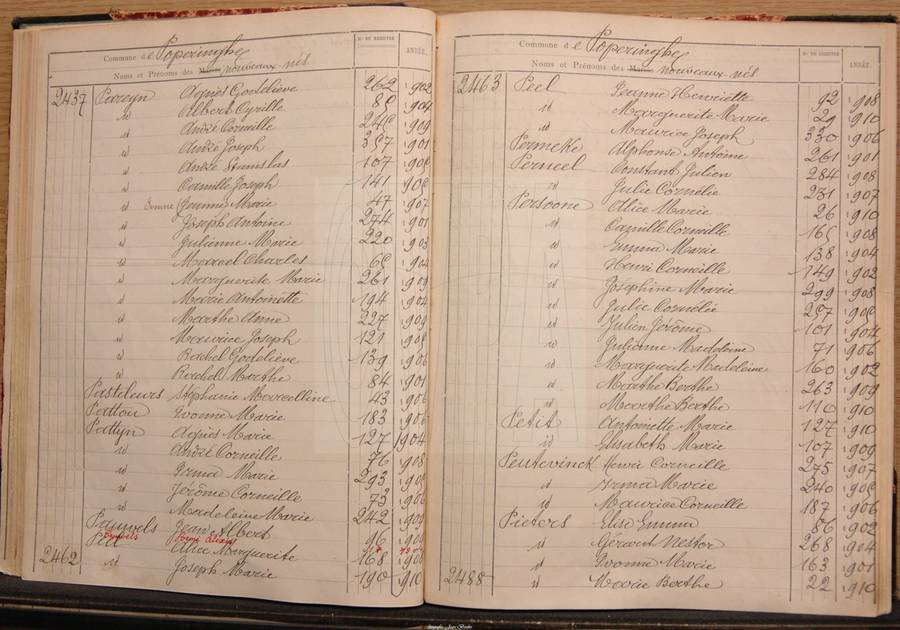 Commune de Poperinghe
Nos DU REGISTRE ANNÉE.
Noms et Prénoms des nouveaux-nés
2437 Pareyn Agnès Godelieve 262 902
id Albert Cyrille 80 904
id André Cornille 909
id André Joseph 357 901
id André Stanislas 107
id Camille Joseph 141
id Jeanne Marie 47 907
id Joseph Antoine 274 901
id Julienne Marie 220 903
id Marcel Charles 904
id Marguerite Marie 261 909
id Marie Antoinette 194 904
id Marthe Anne 227 909
id Maurice Joseph 121
id Rachel Godelieve 139 906
id Rachel Marthe 84 901
Pasteleurs Stéphanie Marcelline 43 906
Pattou Yvonne Marie 183 906
Pattyn Agnès Marie 127 904
id André Corneille 76 908
id Irma Marie 293
id Jérôme Corneille 73
id Madeleine Marie 242
Pauwels Jean Albert 96
Pauwels
Alice Marguerite 168
2462 id Joseph Marie 190 910
Commune de Poperinghe
Nos DU REGISTRE ANNÉE.
Noms et Prénoms des nouveaux-nés
2463 Peel Jeanne Henriette 92 908
id Marguerite Marie 29 910
id Maurice Joseph 330 906
Permeke Alphonse Antoine 261 901
Perneel Constant Julien 284 908
id Julie Cornélie 231 907
Persoone Alice Marie 26 910
id Camille Corneille 908
id Emma Marie 138 904
id Henri Corneille 149 902
id Joséphine Marie 299 908
id Julie Cornélie
id Julien Jérôme 101 904
id Julienne Madeleine 71 906
id Marguerite Madeleine 160 902
id Marthe Berthe 263 909
id Marthe Berthe 110 910
Petit Antoinette Marie 127 910
id Elisabeth Marie 107 909
Peutevinck Henri Corneille 275 907
id Irma Marie 240
id Maurice Corneille 187 906
Pieters Elise Emma 86 902
id Gérard Nestor 268 904
id Yvonne Marie 163 901
2488 id Marie Berthe 22 910